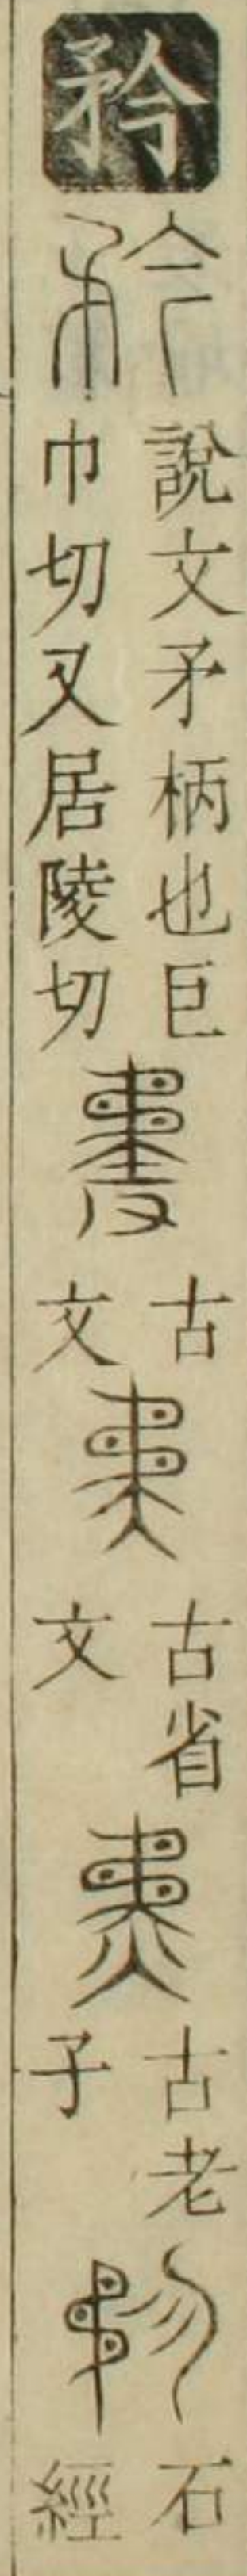 矜
說文矛柄也巨
巾切又居陵切
古
文
古省
文
古老
子
石
經